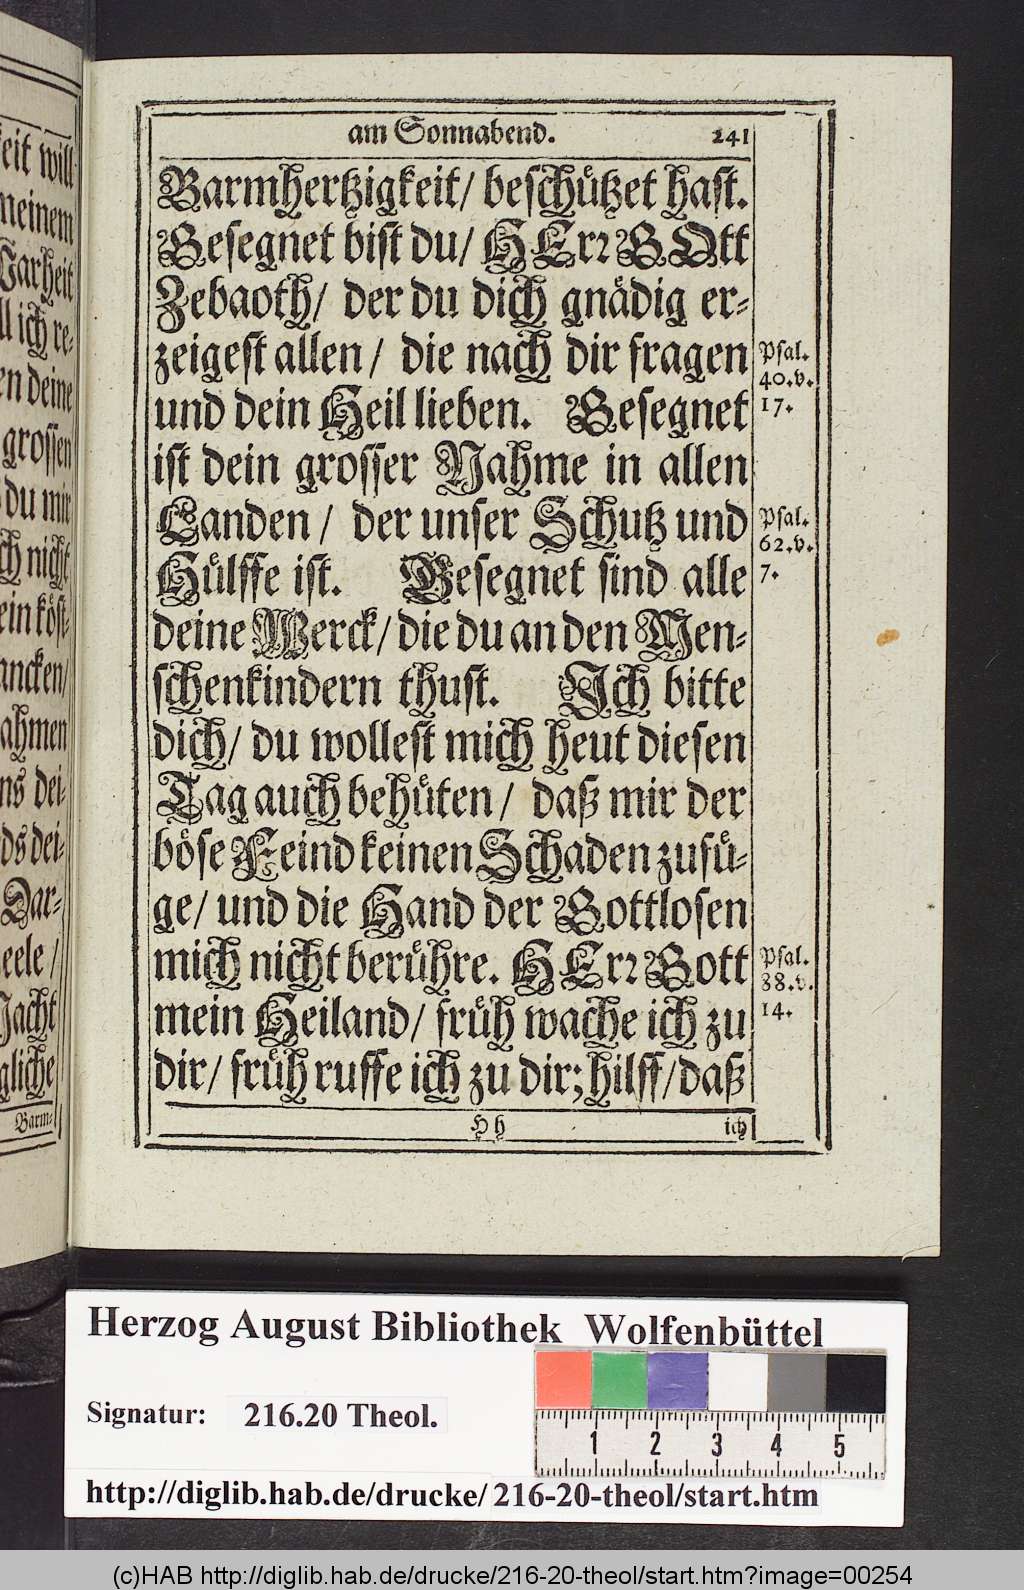 am Sonnabend. 241
Barmhertzigkeit/ beschützet hast.
Gesegnet bist du/ HErr GOtt
Zebaoth/ der du dich gnädig er-
zeigest allen/ die nach dir fragen
und dein Heil lieben. Gesegnet
ist dein grosser Nahme in allen
Landen/ der unser Schutz und
Hülffe ist. Gesegnet sind alle
deine Werck/ die du an den Men-
schenkindern thust. Ich bitte
dich/ du wollest mich heut diesen
Tag auch behüten/ daß mir der
böse Feind keinen Schaden zufü-
ge/ und die Hand der Gottlosen
mich nicht berühre. HErr Gott
mein Heiland/ früh wache ich zu
dir/ früh ruffe ich zu dir; hilff/ daß
Hh ich
Psal.
40.v.
17.
Psal.
62.v.
7.
Psal.
88.v.
14.
eit will
meinem
Warheit
ll ich re-
en deine
grossen
du mir
ch nicht
ein köst-
ancken/
ahmen
ns dei-
ds dei-
Dar-
eele/
Macht
gliche
Barm-
Herzog August Bibliothek Wolfenbüttel
Signatur: 216.20 Theol.
1 2 3 4 5
http://diglib.hab.de/drucke/216-20-theol/start.htm
(c)HAB http://diglib.hab.de/drucke/216-20-theol/start.htm?image=00254